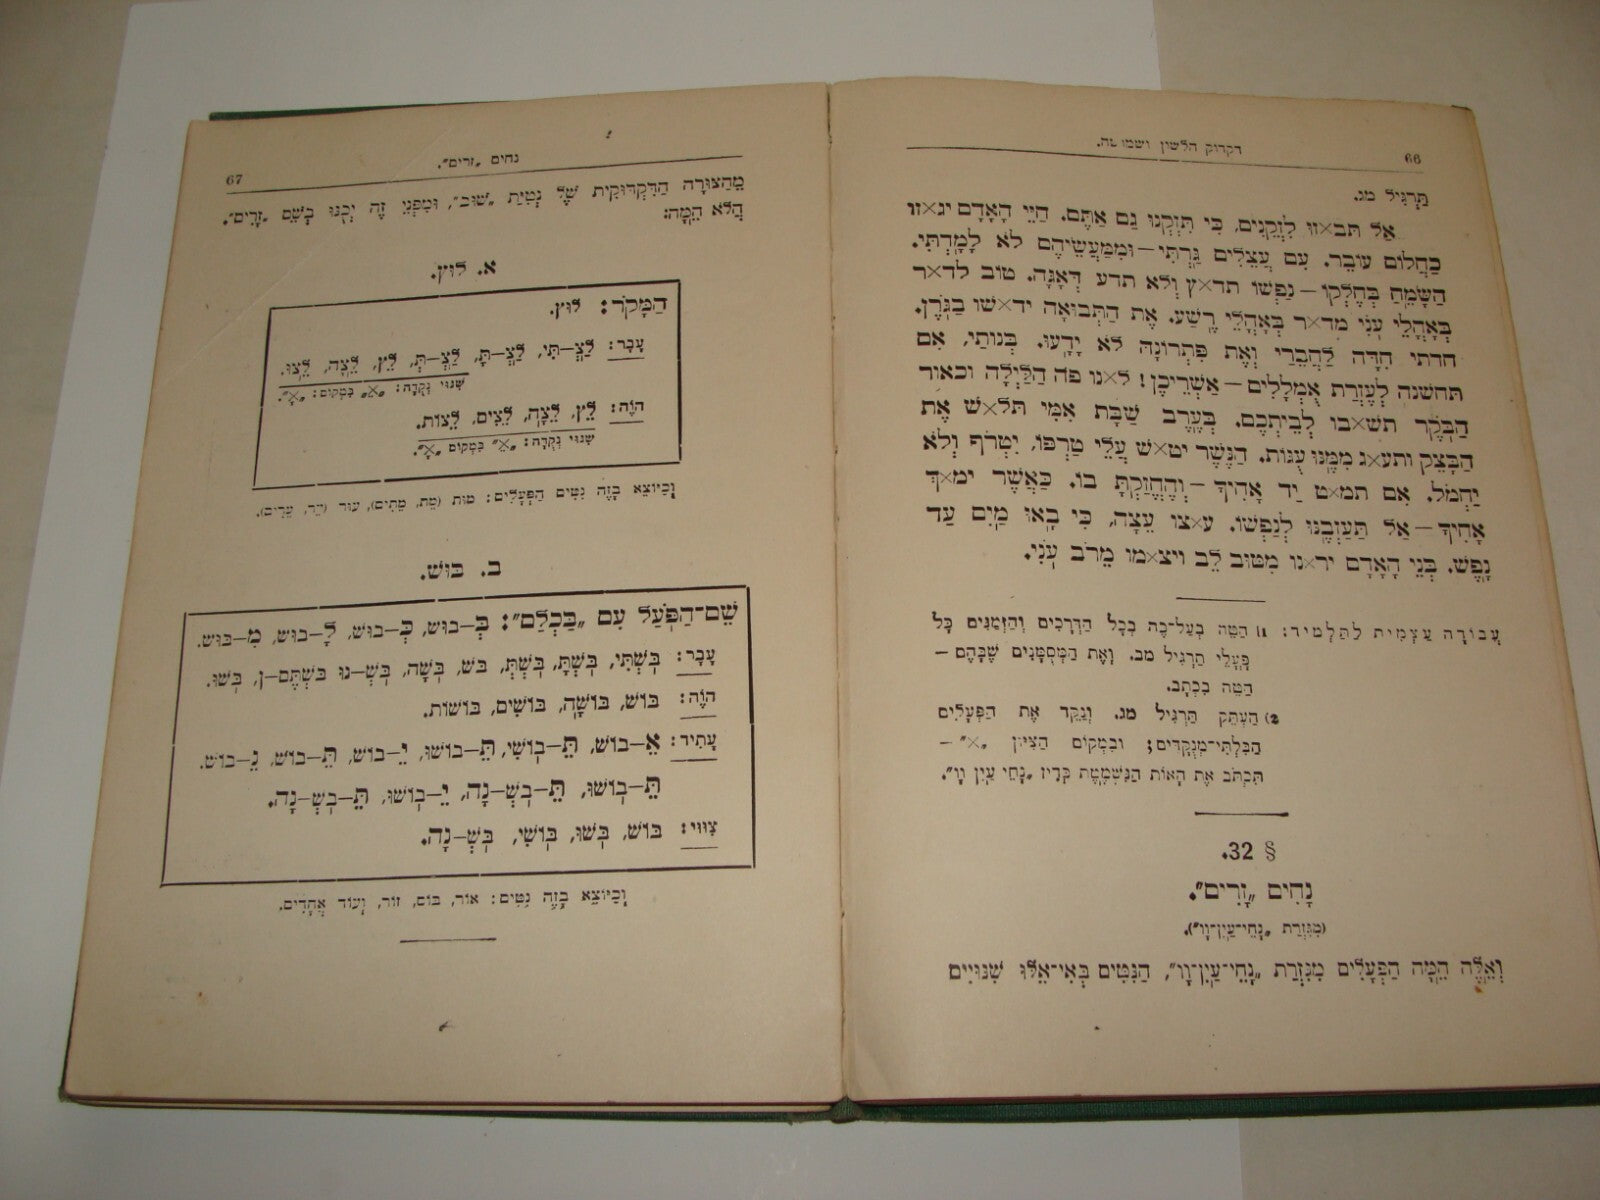 66
דקדוק הלשון ושמושה.
תַּרְגִּיל מג.
אַל תב×זו לִזְקֵנִים, כִּי תִזְקְנוּ גַם אַתֶּם. חַיֵּי הָאָדָם יג×זו
כַּחֲלוֹם עוֹבֵר. עִם עֲצֵלִים גַּרְתִּי – וּמִמַּעֲשֵׂיהֶם לֹא לָמָדְתִּי.
הַשָּׂמֵחַ בְּחֶלְקוֹ – נַפְשׁוֹ תד×ץ וְלֹא תדע דְּאָגָה. טוֹב לד×ר
בְּאָהֳלֵי עֹנִי מד×ר בְּאָהֳלֵי רֶשַׁע. אֶת הַתְּבוּאָה יד×שו בַגֹּרֶן.
חדתי חִדָּה לַחֲבֵרִי וְאֶת פִּתְרוֹנָהּ לֹא יָדָעוּ. בְּנוֹתַי, אִם
תחשנה לְעֶזְרַת אֻמְלָלִים – אַשְׁרֵיכֶן! ל×נו פֹה הַלַּיְלָה וכאור
הַבֹּקֶר תש×בו לְבֵיתְכֶם. בְּעֶרֶב שַׁבָּת אִמִּי תל×ש אֶת
הַבָּצֵק ותע×ג מִמֶּנּוּ עֻגוֹת. הַנֶּשֶׁר יט×ש עֲלֵי טַרְפּוֹ, יִטְרֹף וְלֹא
יַחְמֹל. אִם תמ×ט יַד אָחִיךָ – וְהֶחֱזַקְתָּ בוֹ. כַּאֲשֶׁר ימ×ך
אָחִיךָ – אַל תַּעַזְבֶנּוּ לְנַפְשׁוֹ. ע×צו עֵצָה, כִּי בָאוּ מַיִם עַד
נָפֶשׁ. בְּנֵי הָאָדָם יר×נו מִטּוּב לֵב ויצ×מו מֵרֹב עֹנִי.
עֲבוֹדָה עַצְמִית לַתַּלְמִיד: 1) הַטֵּה בְּעַל־פֶּה בְּכָל הַדְּרָכִים וְהַזְּמַנִּים כָּל
פָּעֳלֵי תַרְגִּיל מב. וְאֶת הַמְסֻמָּנִים שֶׁבָּהֶם –
הַטֵּה בִכְתָב.
2) הַעְתֵּק תַּרְגִּיל מג. וְנַקֵּד אֶת הַפְּעָלִים
הַבִּלְתִּי־מְנֻקָּדִים; וּבִמְקוֹם הַצִּיּוּן „×” –
תִּכְתֹּב אֶת הָאוֹת הַנִּשְׁמֶטֶת כְּדִין „נָחֵי עַיִן וָו”.
§ 32.
נָחִים „זָרִים”.
(מִגִּזְרַת „נָחֵי־עַיִן־וָו”).
וְאֵלֶּה הֵמָּה הַפְּעָלִים מִגִּזְרַת „נָחֵי־עַיִן־וָו”, הַנִּטִּים בְּאִי־אֵלּוּ שִׁנּוּיִים
67
נחים „זרים”.
מֵהַצּוּרָה הַדִּקְדּוּקִית שֶׁל נְטִיַּת „שׁוּב”, וּמִפְּנֵי זֶה יְכֻנּוּ בְשֵׁם „זָרִים”.
הֲלֹא הֵמָּה:
א. לוּץ.
הַמָּקֹר: לוּץ.
עָבָר: לַצְ–תִּי, לַצְ–תָּ, לַצְ–תְּ, לֵץ, לֵצָה, לֵצוּ.
שִׁנּוּי נְקֻדָּה: „×ֵ” בִּמְקוֹם: „×ָ”.
הֹוֶה: לֵץ, לֵצָה, לֵצִים, לֵצוֹת.
שִׁנּוּי נְקֻדָּה: „×ֵ” בִּמְקוֹם „×ָ”.
וְכַיּוֹצֵא בָזֶה נִטִּים הַפְּעָלִים: מוּת (מֵת, מֵתִים), עוּר (עֵר, עֵרִים).
ב. בּוֹשׁ.
שֵׁם־הַפֹּעַל עִם „בַּכְלַם”: בְּ–בוֹשׁ, כְּ–בוֹשׁ, לָ–בוֹשׁ, מִ–בּוֹשׁ.
עָבָר: בֹּשְׁתִּי, בֹּשְׁתָּ, בֹּשְׁתְּ, בֹּשׁ, בֹּשָׁה, בֹּשְׁ–נוּ בֹּשְׁתֶּם–ן, בֹּשׁוּ.
הֹוֶה: בּוֹשׁ, בּוֹשָׁה, בּוֹשִׁים, בּוֹשׁוֹת.
עָתִיד: אֵ–בוֹשׁ, תֵּ–בוֹשִׁי, תֵּ–בוֹשׁוּ, יֵ–בוֹשׁ, תֵּ–בוֹשׁ, נֵ–בוֹשׁ.
תֵּ–בוֹשׁוּ, תֵּ–בֹשְׁ–נָה, יֵ–בוֹשׁוּ, תֵּ–בֹשְׁ–נָה.
צִוּוּי: בּוֹשׁ, בֹּשׁוּ, בּוֹשִׁי, בֹּשְׁ–נָה.
וְכַיּוֹצֵא בָזֶה נִטִּים: אוֹר, בּוֹס, זוֹר, וְעוֹד אֲחָדִים.